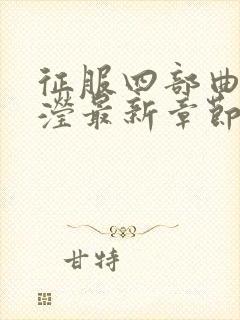 征服四部曲
滢最新章節
甘特